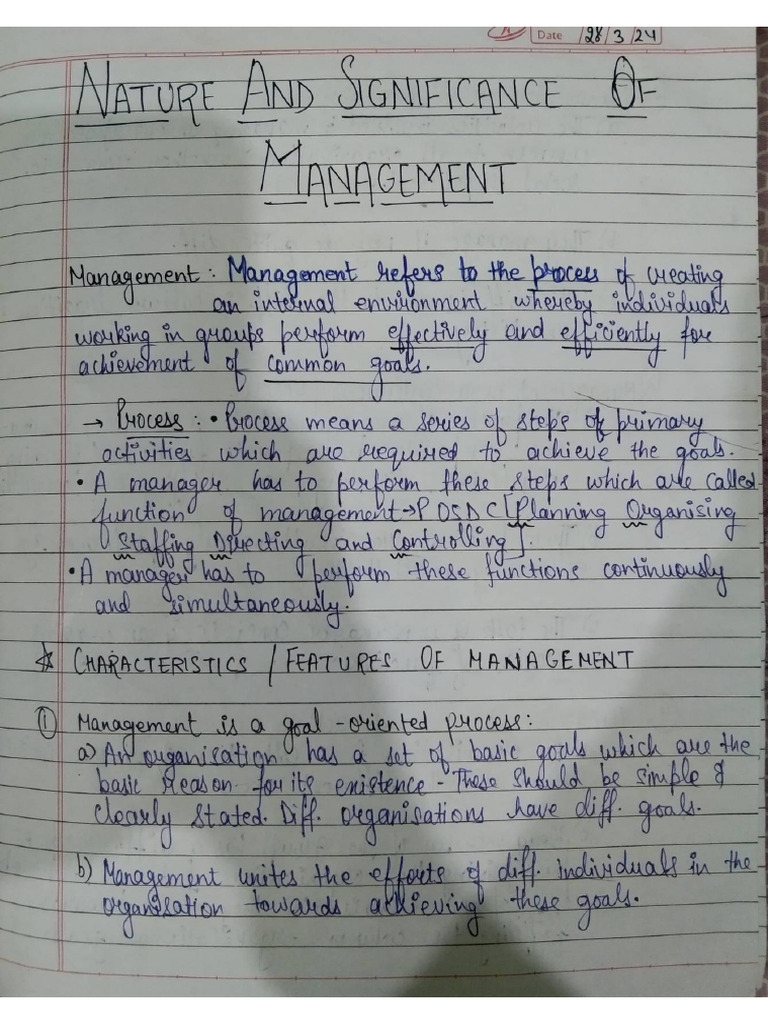 Date 28/3/24
NATURE AND SIGNIFICANCE OF
MANAGEMENT
Management : Management refers to the process of creating
an internal environment whereby individuals
working in groups perform effectively and efficiently for
achievement of common goals.
→ Process : • Process means a series of steps of primary
activities which are required to achieve the goals.
• A manager has to perform these steps which are called
function of management → POSDC [Planning Organising
Staffing Directing and Controlling].
• A manager has to perform these functions continuously
and simultaneously.
☆ CHARACTERISTICS / FEATURES OF MANAGEMENT
① Management is a goal-oriented process:
a) An organisation has a set of basic goals which are the
basic reason for its existence - These should be simple &
clearly stated. Diff. organisations have diff. goals.
b) Management unites the efforts of diff. individuals in the
organisation towards achieving these goals.